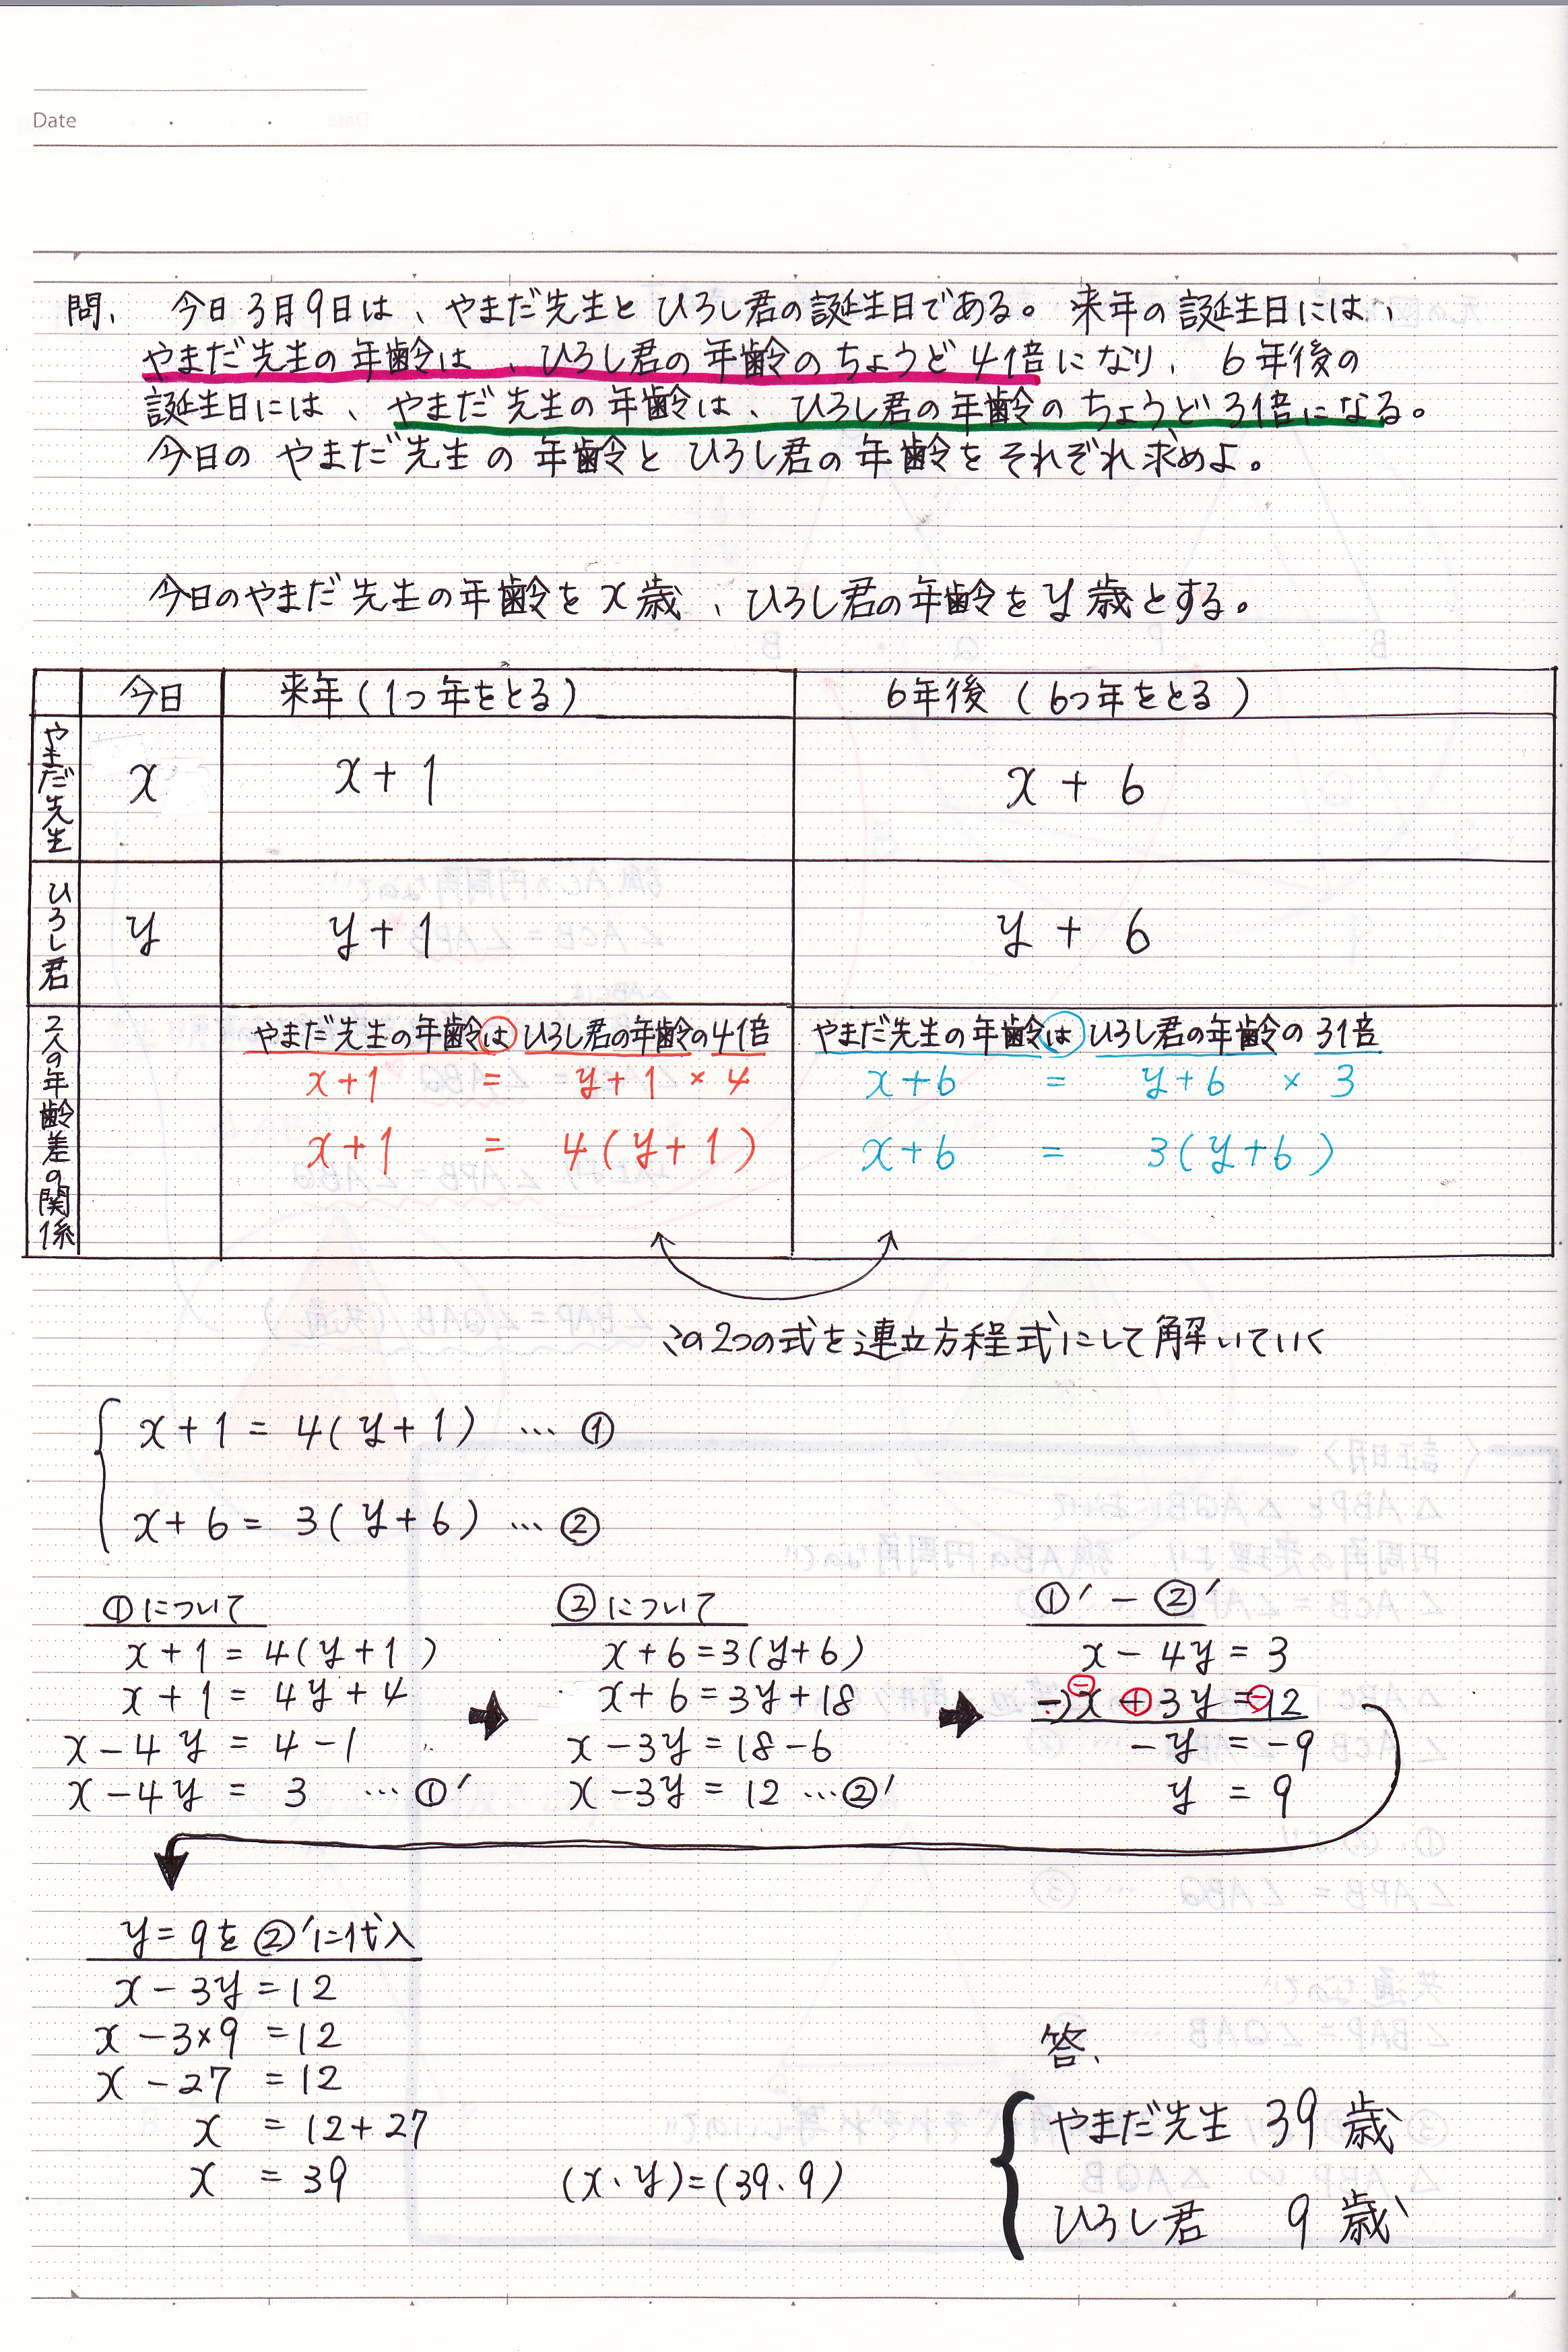 Date
問、 今日3月9日は、やまだ先生とひろし君の誕生日である。来年の誕生日には、
やまだ先生の年齢は、ひろし君の年齢のちょうど4倍になり、6年後の
誕生日には、やまだ先生の年齢は、ひろし君の年齢のちょうど3倍になる。
今日のやまだ先生の年齢とひろし君の年齢をそれぞれ求めよ。
今日のやまだ先生の年齢をx歳、ひろし君の年齢をy歳とする。
今日 来年(1つ年をとる) 6年後(6つ年をとる)
やまだ先生 x x+1 x+6
ひろし君 y y+1 y+6
2人の年齢差の関係
やまだ先生の年齢は ひろし君の年齢の4倍
x+1 = y+1 × 4
x+1 = 4(y+1)
やまだ先生の年齢は ひろし君の年齢の 3倍
x+6 = y+6 × 3
x+6 = 3(y+6)
この2つの式を連立方程式にして解いていく
x+1 = 4(y+1) … ①
x+6 = 3(y+6) … ②
①について
x+1 = 4(y+1)
x+1 = 4y+4
x-4y = 4-1
x-4y = 3 … ①'
②について
x+6=3(y+6)
x+6=3y+18
x-3y=18-6
x-3y=12 …②'
①' - ②'
x-4y=3
-)x + 3y = -12
-y = -9
y = 9
y=9を②'に代入
x-3y=12
x-3×9=12
x-27=12
x=12+27
x=39
(x、y)=(39、9)
答、
やまだ先生 39歳
ひろし君 9歳